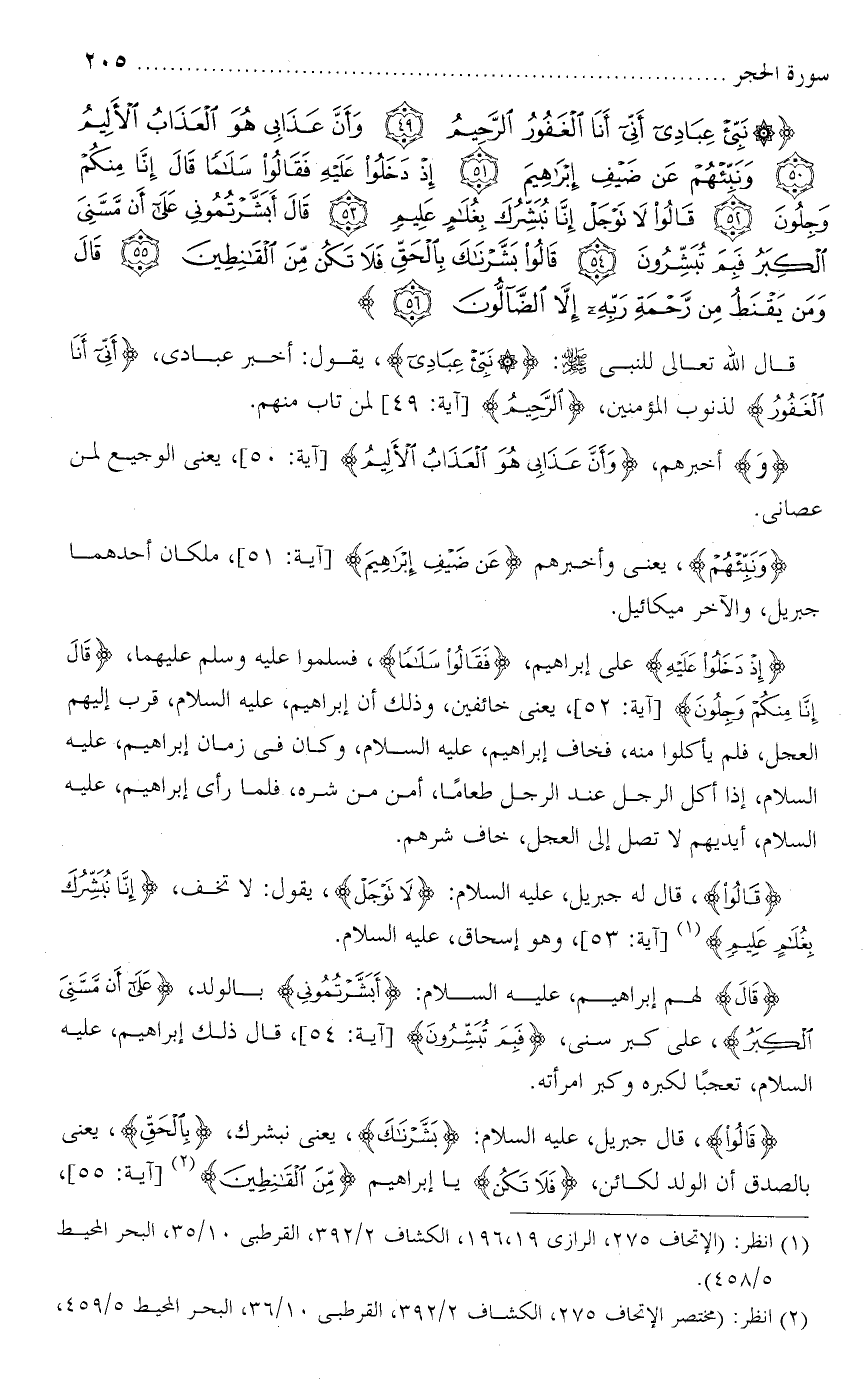 سورة الحجر ........................................................................ ٢٠٥
﴿۞ نَبِّئْ عِبَادِىٓ أَنِّىٓ أَنَا ٱلْغَفُورُ ٱلرَّحِيمُ ٤٩ وَأَنَّ عَذَابِى هُوَ ٱلْعَذَابُ ٱلْأَلِيمُ
٥٠ وَنَبِّئْهُمْ عَن ضَيْفِ إِبْرَٰهِيمَ ٥١ إِذْ دَخَلُوا۟ عَلَيْهِ فَقَالُوا۟ سَلَٰمًا قَالَ إِنَّا مِنكُمْ
وَجِلُونَ ٥٢ قَالُوا۟ لَا تَوْجَلْ إِنَّا نُبَشِّرُكَ بِغُلَٰمٍ عَلِيمٍ ٥٣ قَالَ أَبَشَّرْتُمُونِى عَلَىٰٓ أَن مَّسَّنِىَ
ٱلْكِبَرُ فَبِمَ تُبَشِّرُونَ ٥٤ قَالُوا۟ بَشَّرْنَٰكَ بِٱلْحَقِّ فَلَا تَكُن مِّنَ ٱلْقَٰنِطِينَ ٥٥ قَالَ
وَمَن يَقْنَطُ مِن رَّحْمَةِ رَبِّهِۦٓ إِلَّا ٱلضَّآلُّونَ ٥٦ ﴾
قال الله تعالى للنبى ﷺ: ﴿۞ نَبِّئْ عِبَادِىٓ﴾، يقول: أخبر عبادى، ﴿أَنِّىٓ أَنَا
ٱلْغَفُورُ﴾ لذنوب المؤمنين، ﴿ٱلرَّحِيمُ﴾ [آية: ٤٩] لمن تاب منهم.
﴿وَ﴾ أخبرهم، ﴿وَأَنَّ عَذَابِى هُوَ ٱلْعَذَابُ ٱلْأَلِيمُ﴾ [آية: ٥٠]، يعنى الوجيع لمن
عصانى.
﴿وَنَبِّئْهُمْ﴾، يعنى وأخبرهم ﴿عَن ضَيْفِ إِبْرَٰهِيمَ﴾ [آية: ٥١]، ملكان أحدهما
جبريل، والآخر ميكائيل.
﴿إِذْ دَخَلُوا۟ عَلَيْهِ﴾ على إبراهيم، ﴿فَقَالُوا۟ سَلَٰمًا﴾، فسلموا عليه وسلم عليهما، ﴿قَالَ
إِنَّا مِنكُمْ وَجِلُونَ﴾ [آية: ٥٢]، يعنى خائفين، وذلك أن إبراهيم، عليه السلام، قرب إليهم
العجل، فلم يأكلوا منه، فخاف إبراهيم، عليه السلام، وكان فى زمان إبراهيم، عليه
السلام، إذا أكل الرجل عند الرجل طعامًا، أمن من شره، فلما رأى إبراهيم، عليه
السلام، أيديهم لا تصل إلى العجل، خاف شرهم.
﴿قَالُوا۟﴾، قال له جبريل، عليه السلام: ﴿لَا تَوْجَلْ﴾، يقول: لا تخف، ﴿إِنَّا نُبَشِّرُكَ
بِغُلَٰمٍ عَلِيمٍ﴾ (١) [آية: ٥٣]، وهو إسحاق، عليه السلام.
﴿قَالَ﴾ لهم إبراهيم، عليه السلام: ﴿أَبَشَّرْتُمُونِى﴾ بالولد، ﴿عَلَىٰٓ أَن مَّسَّنِىَ
ٱلْكِبَرُ﴾، على كبر سنى، ﴿فَبِمَ تُبَشِّرُونَ﴾ [آية: ٥٤]، قال ذلك إبراهيم، عليه
السلام، تعجبًا لكبره وكبر امرأته.
﴿قَالُوا۟﴾، قال جبريل، عليه السلام: ﴿بَشَّرْنَٰكَ﴾، يعنى نبشرك، ﴿بِٱلْحَقِّ﴾، يعنى
بالصدق أن الولد لكائن، ﴿فَلَا تَكُن﴾ يا إبراهيم ﴿مِّنَ ٱلْقَٰنِطِينَ﴾ (٢) [آية: ٥٥]،
(١) انظر: (الإتحاف ٢٧٥، الرازى ١٩٦،١٩، الكشاف ٣٩٢/٢، القرطبى ٣٥/١٠، البحر المحيط
٤٥٨/٥).
(٢) انظر: (مختصر الإتحاف ٢٧٥، الكشاف ٣٩٢/٢، القرطبى ٣٦/١٠، البحر المحيط ٤٥٩/٥،